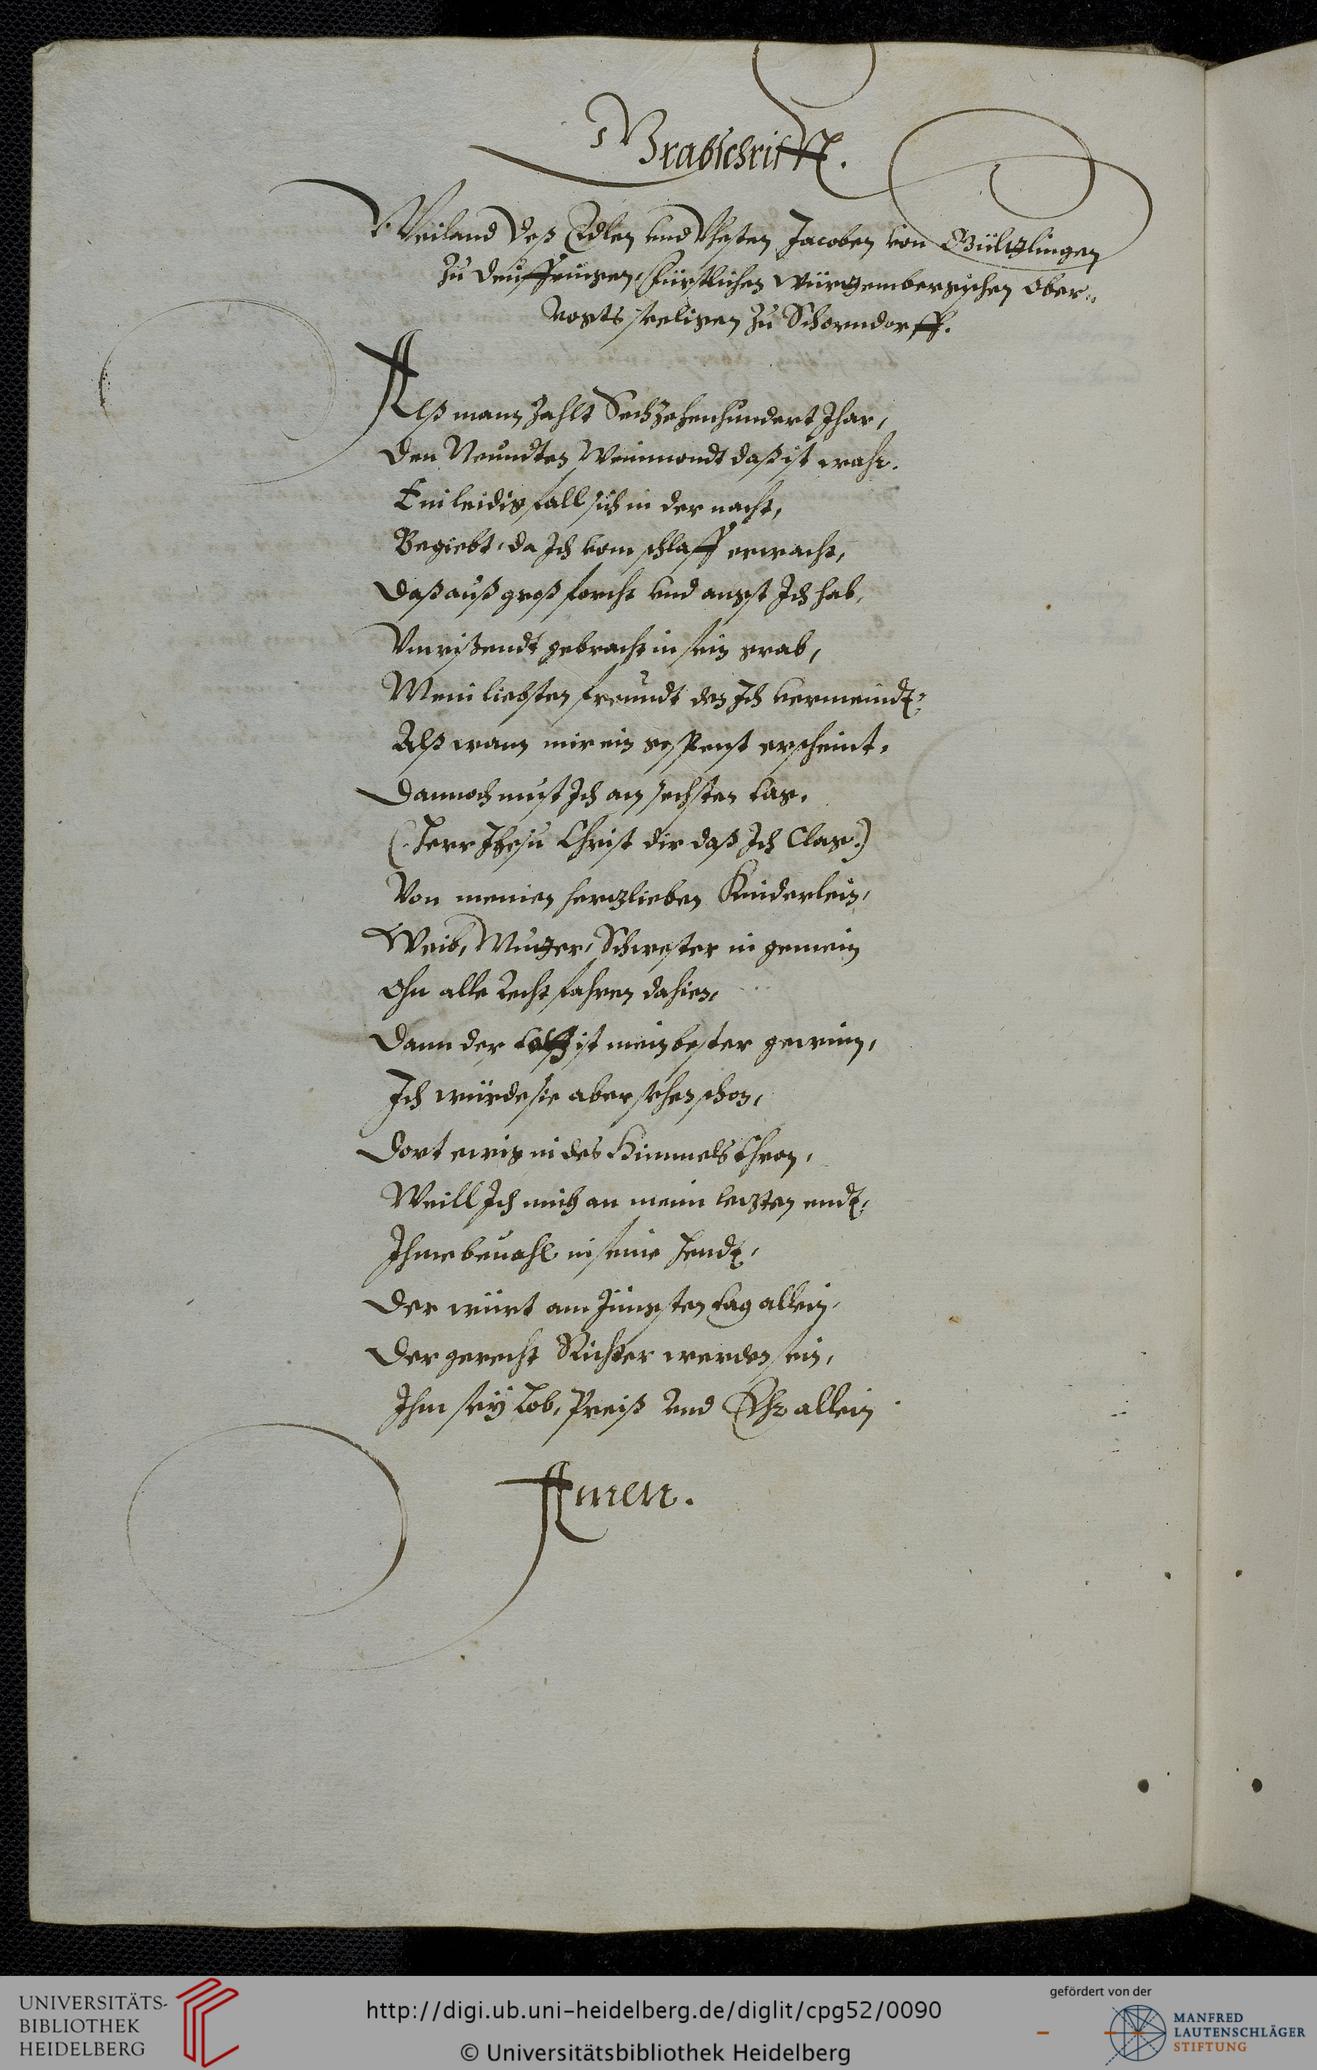 Grabschrifft.
Weiland deß Edlen vnd Vhesten Jacoben von Gültlingen
Zu deuffringen, Fürstlichen würtembergischen Ober-
vogts seeligen zu Schorndorff.
Alß mann zahlt Sechzehenhundert Jhar,
Den Neundten Weinmondt daß ist wahr.
Ein leidig fall sich in der nacht,
Begiebt, da Ich vom schlaff erwacht,
Daß auß groß forcht vnd angst Ich hab,
Vnwißendt gebracht in sein grab,
Mein liebsten freundt den Ich vermeindt,
Alß wann mir ein gespenst erscheint.
Dannoch must Ich am sechsten tag,
(Herr Jhesu Christ dir daß Ich Clag.)
Von meinen hertzlieben Kinderlein,
Weib, Mutter, Schwester in gemein
Ohn alle recht fahren dahien,
Dann der todt ist mein bester gewinn,
Ich würde sie aber sehen schon,
Dort ewig in des Himmels thron,
Weill Ich mich an meim letzten endt,
Ihme bevahl in seine hendt,
Der würt am Jüngsten tag allein,
Der gerecht Richter werden sein,
Ihm sey Lob, Preiß vnd Ehr allein
Amen.
UNIVERSITÄTS-
BIBLIOTHEK
HEIDELBERG
http://digi.ub.uni-heidelberg.de/diglit/cpg52/0090
© Universitätsbibliothek Heidelberg
gefördert von der
MANFRED
LAUTENSCHLÄGER
STIFTUNG